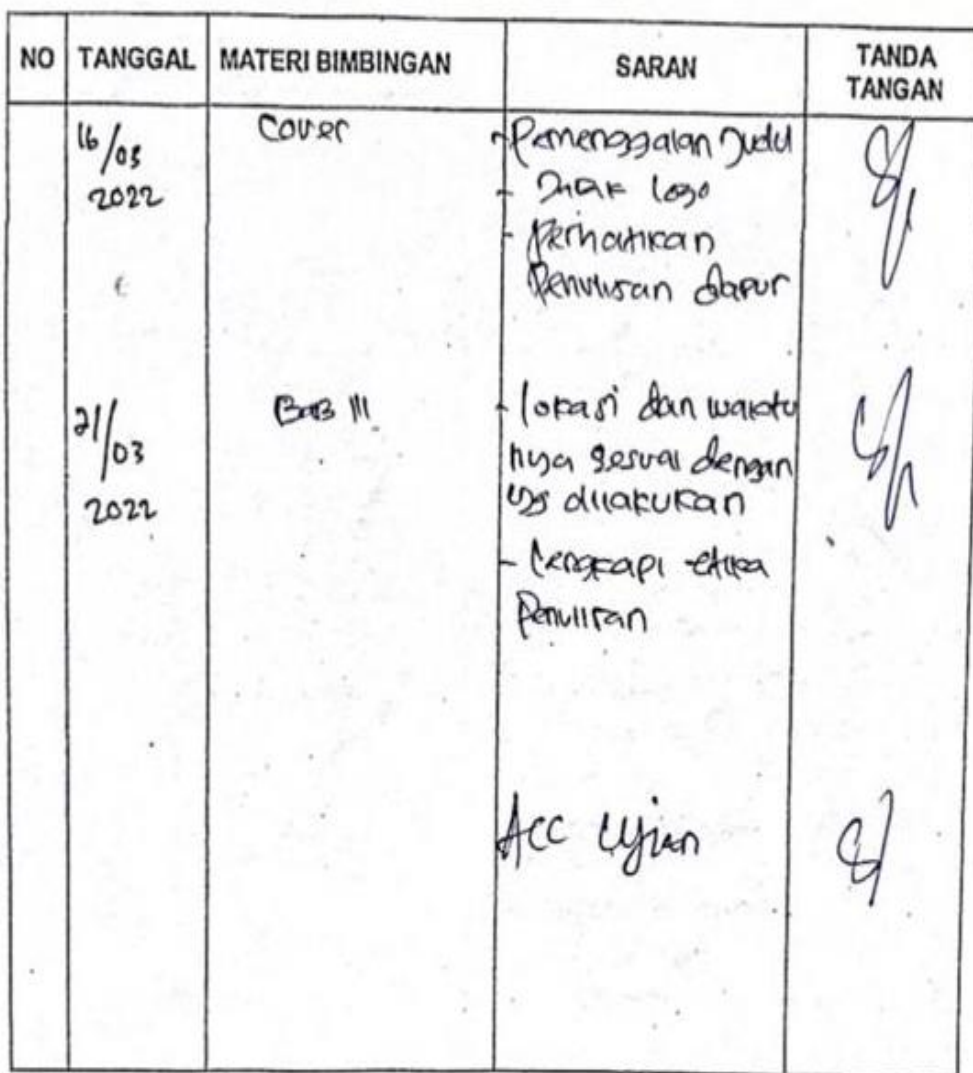 NO TANGGAL MATERI BIMBINGAN SARAN TANDA TANGAN
16/03 2022 Cover - Pemenggalan Judul
- logo
- Perhatikan
Penulisan dapur
21/03 2022 BAB III - lokasi dan waktu
nya sesuai dengan
yg dilakukan
- Lengkapi etika
Penulisan
ACC Ujian